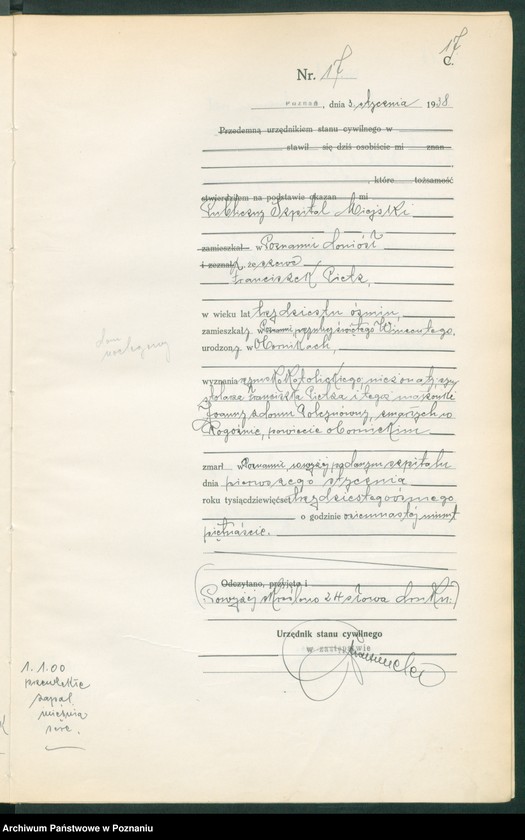 17
C.
Nr. 17
Poznań, dnia 3 stycznia 1938
Przedemną urzędnikiem stanu cywilnego w
stawił się dziś osobiście mi znan
, które tożsamość
stwierdziłem na podstawie okazan mi
Publiczny Szpital Miejski
zamieszkał w Poznaniu doniósł
i zeznał, że szewc
Franciszek Pietz,
w wieku lat trzydziestu ośmiu,
zamieszkały w Poznaniu, przy ulicy świętego Wincentego,
urodzony w Obornikach,
wyznania rzymskokatolickiego, nieżonaty, syn
stolarza Franciszka i tegoż małżonki
Joanny z domu zmarłych w
Rogoźnie, powiecie obornickim
zmarł w Poznaniu, w szpitalu
dnia pierwszego stycznia
roku tysiąc dziewięćset trzydziestego ósmego
o godzinie osiemnastej minut
piętnaście.
Odczytano, przyjęto i
(Powyżej skreślono 24 słowa druku.)
Urzędnik stanu cywilnego
w zastępstwie
1.1.00
przewlekłe
zapal.
mięśnia
serc.
Archiwum Państwowe w Poznaniu